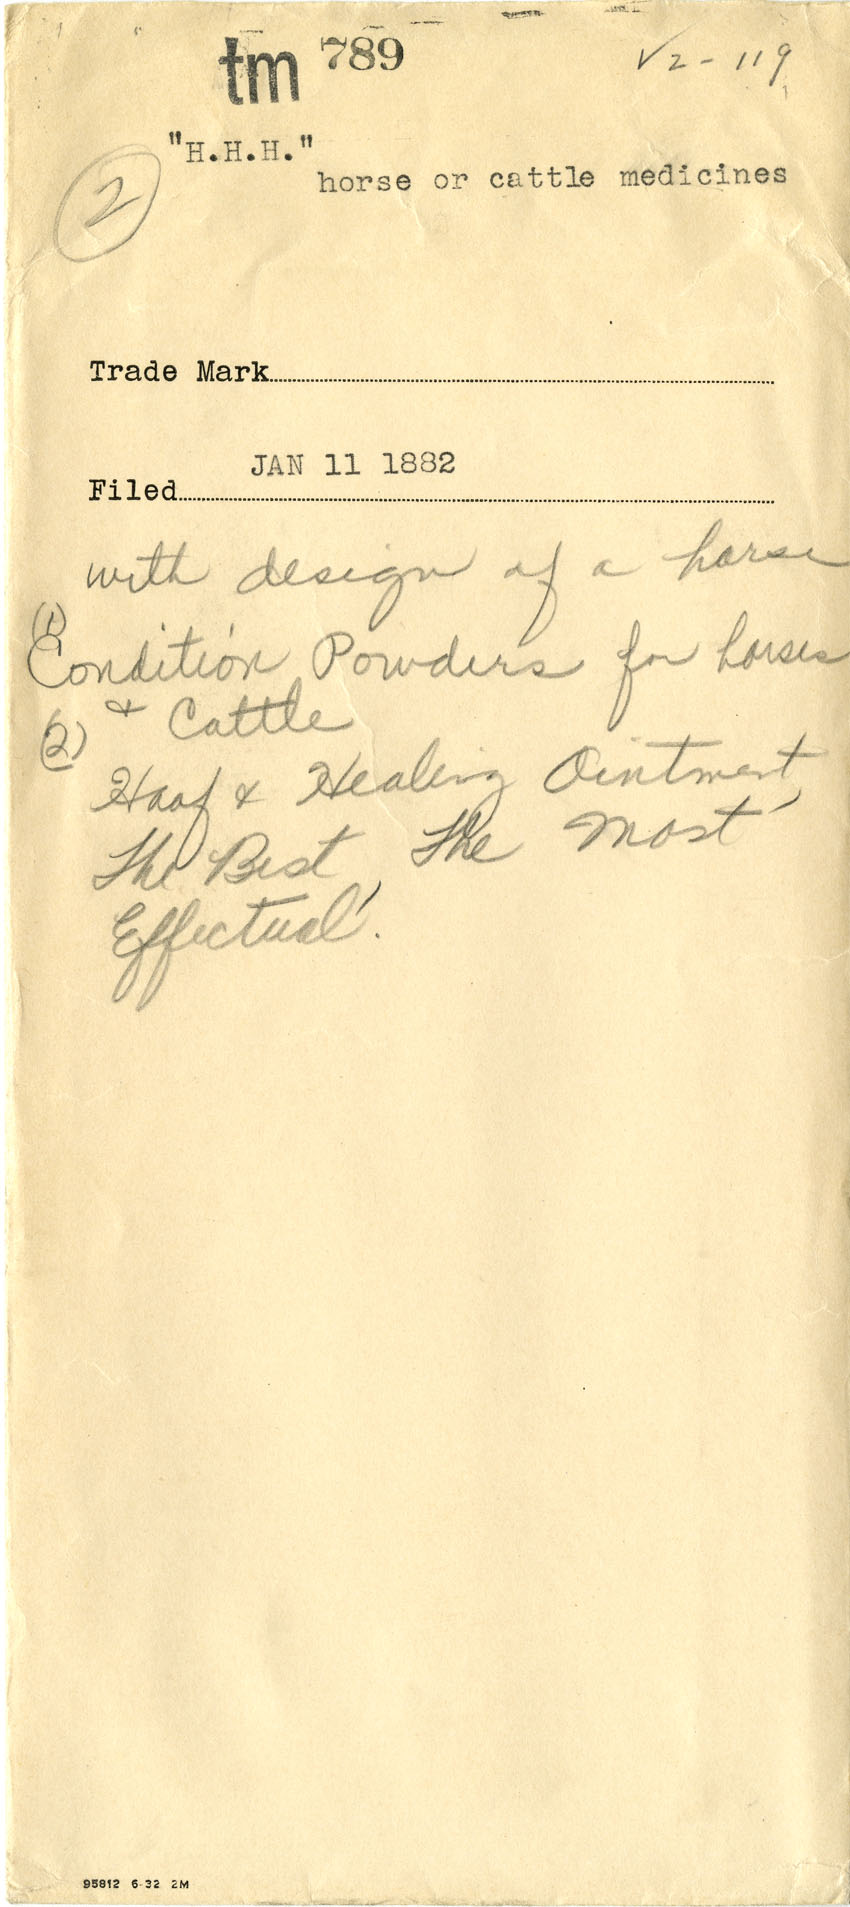 tm 789 √2-119
"H.H.H."
horse or cattle medicines
2
Trade Mark
JAN 11 1882
Filed
with design of a horse
(1)
Condition Powders for horses
& Cattle
(2)
Hoof & Healing Ointment,
The Best, The Most
Effectual.
95812 6-32 2M